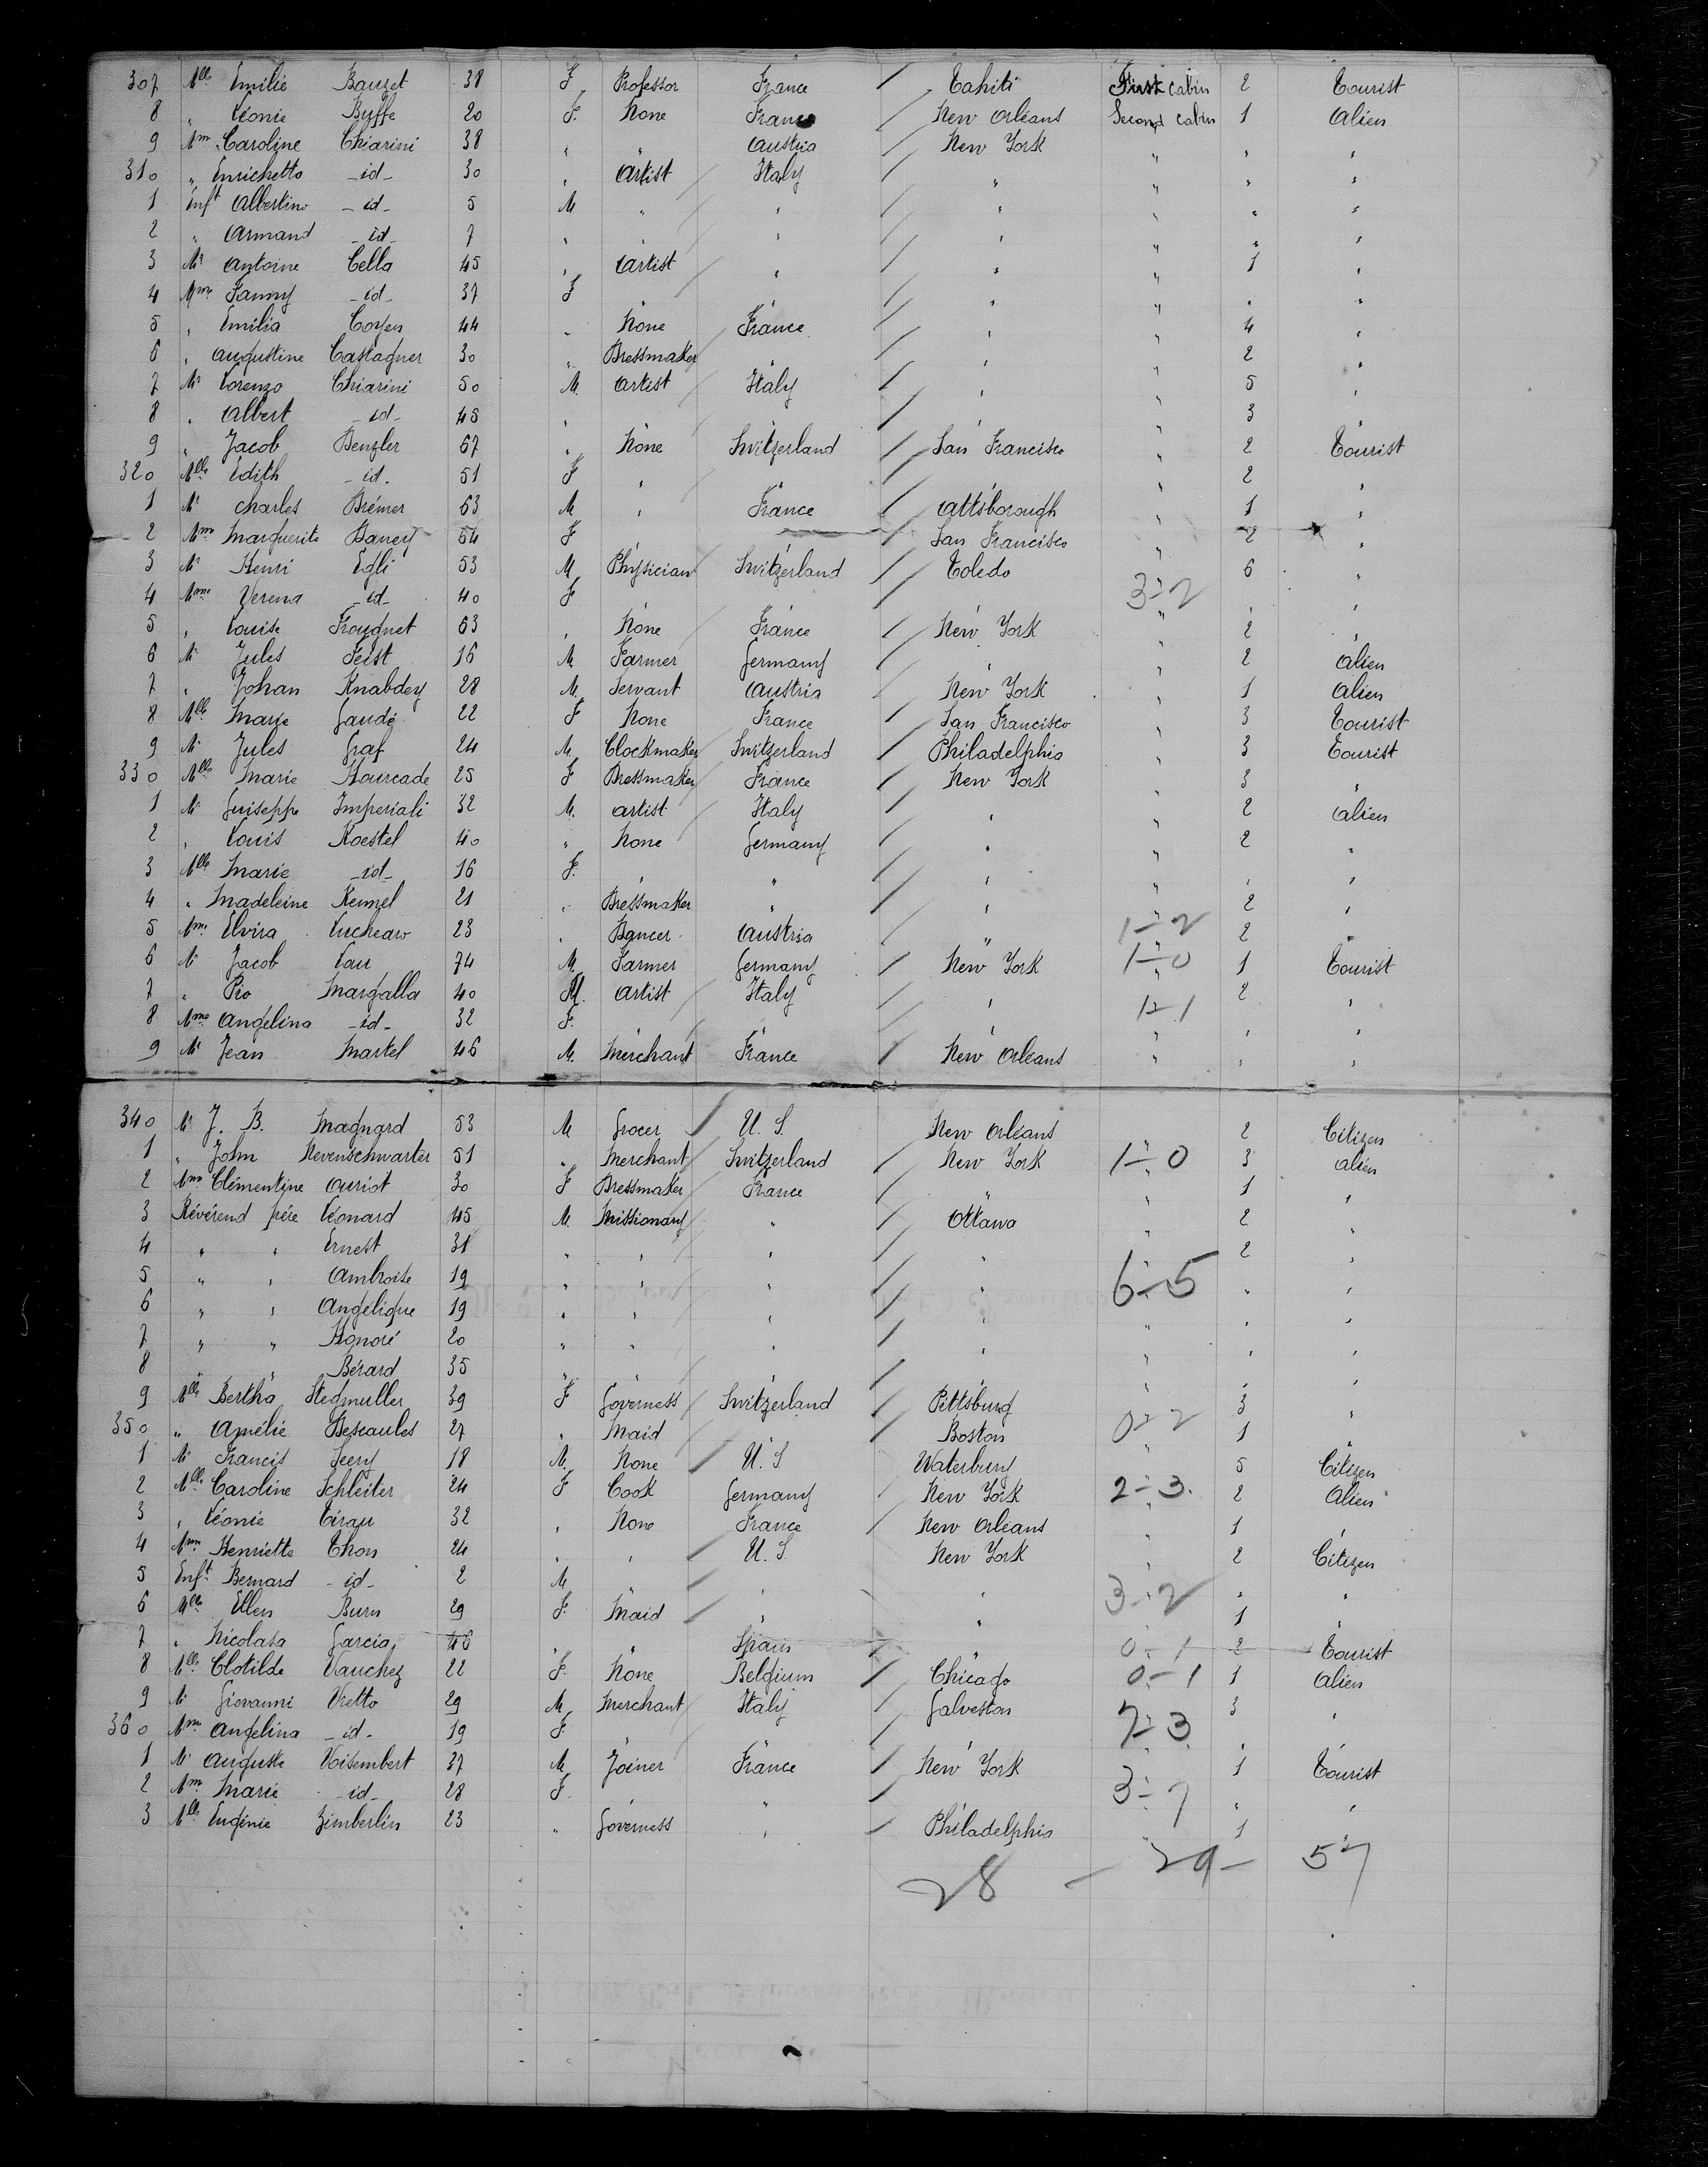 307 Mlle Emilie Bauzet 38 F Professor France / Tahiti First Cabin 2 Tourist
8 " Léonie Byffe 20 F. None France / New Orleans Second Cabin 1 Alien
9 Mme Caroline Chiarini 38 " " Austria / New York " " "
310 " Enrichetta -id- 30 " Artist Italy / " " " "
1 Inft Albertino -id- 5 M " " / " " " "
2 " Armand -id- 7 " " " / " " " "
3 Mr Antoine Cella 45 " Artist " / " " 1 "
4 Mme Fanny -id- 37 F " " / " " " "
5 " Emilia Coyen 44 " None France / " " 4 "
6 " Augustine Castagner 30 " Dressmaker " / " " 2 "
7 Mr Lorenzo Chiarini 50 M. Artist Italy / " " 5 "
8 " Albert -id- 45 " " " / " " 3 "
9 " Jacob Benzler 67 " None Switzerland / San Francisco " 2 Tourist
320 Mlle Edith -id. 51 F " " / " " 2 "
1 Mr Charles Brémer 63 M " France / Attsborough " 1 "
2 Mme Marguerite Banery 54 F San Francisco " 2 "
3 Mr Henri Egli 53 M Physician Switzerland / Toledo " 6 "
4 Mme Verena -id- 40 F " " / " 3-2 " "
5 " Louise Frougnet 63 " None France / New York " 2 "
6 Mr Jules Feist 16 M. Farmer Germany / " " 2 Alien
7 " Johan Knabdey 28 M. Servant Austria / New York " 1 Alien
8 Mlle Marie Gaudé 22 F None France / San Francisco " 3 Tourist
9 Mr Jules Graf 24 M. Clockmaker Switzerland / Philadelphia " 3 Tourist
330 Mlle Marie Hourcade 25 F Dressmaker France / New York " 3 "
1 Mr Guiseppe Imperiali 32 M. Artist Italy / " " 2 Alien
2 " Louis Koestel 40 " None Germany / " " 2 "
3 Mlle Marie -id- 16 F. " " / " " " "
4 " Madeleine Kenzel 21 " Dressmaker " / " " 2 "
5 Mme Elvira Luchearo 23 " Dancer Austria / " 1-2 2 "
6 Mr Jacob Lau 74 M. Farmer Germany / New York 1-0 1 Tourist
7 " Pio Margalla 40 M. Artist Italy / " 1-1 2 "
8 Mme Angelina -id- 32 F. " " / " " " "
9 Mr Jean Martel 46 M. Merchant France / New Orleans " " "
340 Mr J. B. Magnard 53 M Grocer / U. S. New Orleans " 2 Citizen
1 " John Nevenschwarter 51 " Merchant Switzerland / New York 1-0 3 Alien
2 Mme Clémentine Auriot 30 F Dressmaker France / " " 1 "
3 Révérend père Léonard 45 M. Missionary " / Ottawa " 2 "
4 " " Ernest 31 " " " / " " 2 "
5 " " Ambroise 19 " " " / " 6-5 " "
6 " " Angélique 19 " " " / " " " "
7 " " Honoré 20 " " " / " " " "
8 " " Bérard 35 " " " / " " " "
9 Mlle Bertha Stegmuller 39 F Governess Switzerland / Pittsburg " 3 "
350 " Amélie Descaules 27 " Maid " / Boston 0-2 1 "
1 Mr Francis Seery 18 M. None / U. S Waterbury " 5 Citizen
2 Mlle Caroline Schleiter 24 F Cook Germany / New York 2-3. 2 Alien
3 " Léonie Tirau 32 " None France / New Orleans " 1 "
4 Mme Henriette Thors 24 " " U. S. New York " 2 Citizen
5 Inft Bernard -id- 2 M " / " " 3-2 " "
6 Mlle Ellen Burn 29 F. Maid / " " " 1 "
7 " Nicolasa Garcia 46 " " Spain " 0-1 2 Tourist
8 Mlle Clotilde Vauchez 22 F. None Belgium / Chicago 0-1 1 Alien
9 Mr Giovanni Vietto 29 M. Merchant Italy / Galveston " 3 "
360 Mme Angelina -id- 19 F. " " / " 7-3 " "
1 Mr Auguste Voisembert 37 M. Joiner France / New York " 1 Tourist
2 Mme Marie -id- 28 F. " " / " 3-7 " "
3 Mlle Eugénie Zimberlin 23 " Governess " / Philadelphia " 1 "
28 - 29 - 57